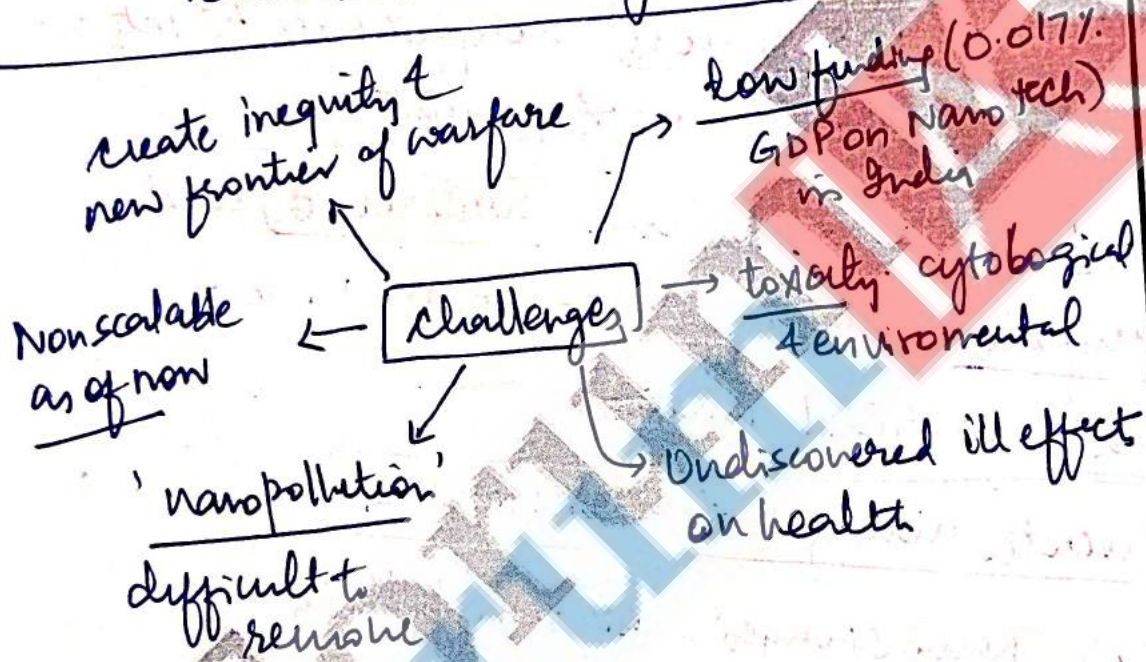 create inequity &
new frontier of warfare
Low funding (0.017%
GDP on Nano tech)
in India
Non scalable
as of now
challenges
toxicity cytological
& enviromental
'nanopollution'
difficult to
remove
Undiscovered ill effect
on health